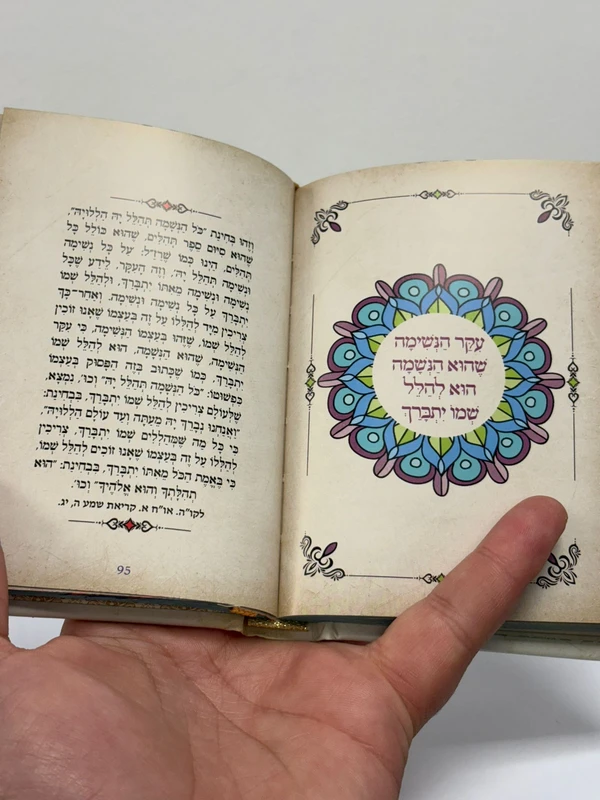 וְזֶהוּ בְּחִינַת "כֹּל הַנְּשָׁמָה תְּהַלֵּל יָהּ הַלְלוּיָהּ",
שֶׁהוּא סִיּוּם סֵפֶר תְּהִלִּים, שֶׁהוּא כּוֹלֵל כָּל
תְּהִלִּים, הַיְנוּ כְּמוֹ שֶׁדָּרְזַ"ל: עַל כָּל נְשִׁימָה
וּנְשִׁימָה תְּהַלֵּל יָהּ'. וְזֶה הָעִקָּר. לֵידַע שֶׁכָּל
נְשִׁימָה וּנְשִׁימָה מֵאִתּוֹ יִתְבָּרַךְ. וּלְהַלֵּל שְׁמוֹ
יִתְבָּרַךְ עַל כָּל נְשִׁימָה וּנְשִׁימָה. וְאַחַר-כָּךְ
צְרִיכִין מִיָּד לְהַלְלוֹ עַל זֶה בְּעַצְמוֹ שֶׁאָנוּ זוֹכִין
לְהַלֵּל שְׁמוֹ, שֶׁזֶּהוּ בְּעַצְמוֹ הַנְּשִׁימָה, כִּי עִקַּר
הַנְּשִׁימָה, שֶׁהוּא הַנְּשָׁמָה, הוּא לְהַלֵּל שְׁמוֹ
יִתְבָּרַךְ, כְּמוֹ שֶׁכָּתוּב בְּזֶה הַפָּסוּק בְּעַצְמוֹ
כִּפְשׁוּטוֹ: "כֹּל הַנְּשָׁמָה תְּהַלֵּל יָהּ" וְכוּ', נִמְצָא,
שֶׁלְּעוֹלָם צְרִיכִין לְהַלֵּל שְׁמוֹ יִתְבָּרַךְ, בִּבְחִינַת:
"וַאֲנַחְנוּ נְבָרֵךְ יָהּ מֵעַתָּה וְעַד עוֹלָם הַלְלוּיָהּ".
כִּי כָּל מַה שֶּׁמְּהַלְלִים שְׁמוֹ יִתְבָּרַךְ, צְרִיכִין
לְהַלְלוֹ עַל זֶה בְּעַצְמוֹ שֶׁאָנוּ זוֹכִים לְהַלֵּל שְׁמוֹ,
כִּי בֶּאֱמֶת הַכֹּל מֵאִתּוֹ יִתְבָּרַךְ, בִּבְחִינַת: "הוּא
תְהִלָּתְךָ וְהוּא אֱלֹהֶיךָ" וְכוּ'.
לקו"ה. או"ח א. קריאת שמע ה, יג.
95
עִקַּר הַנְּשִׁימָה
שֶׁהוּא הַנְּשָׁמָה
הוּא לְהַלֵּל
שְׁמוֹ יִתְבָּרַךְ